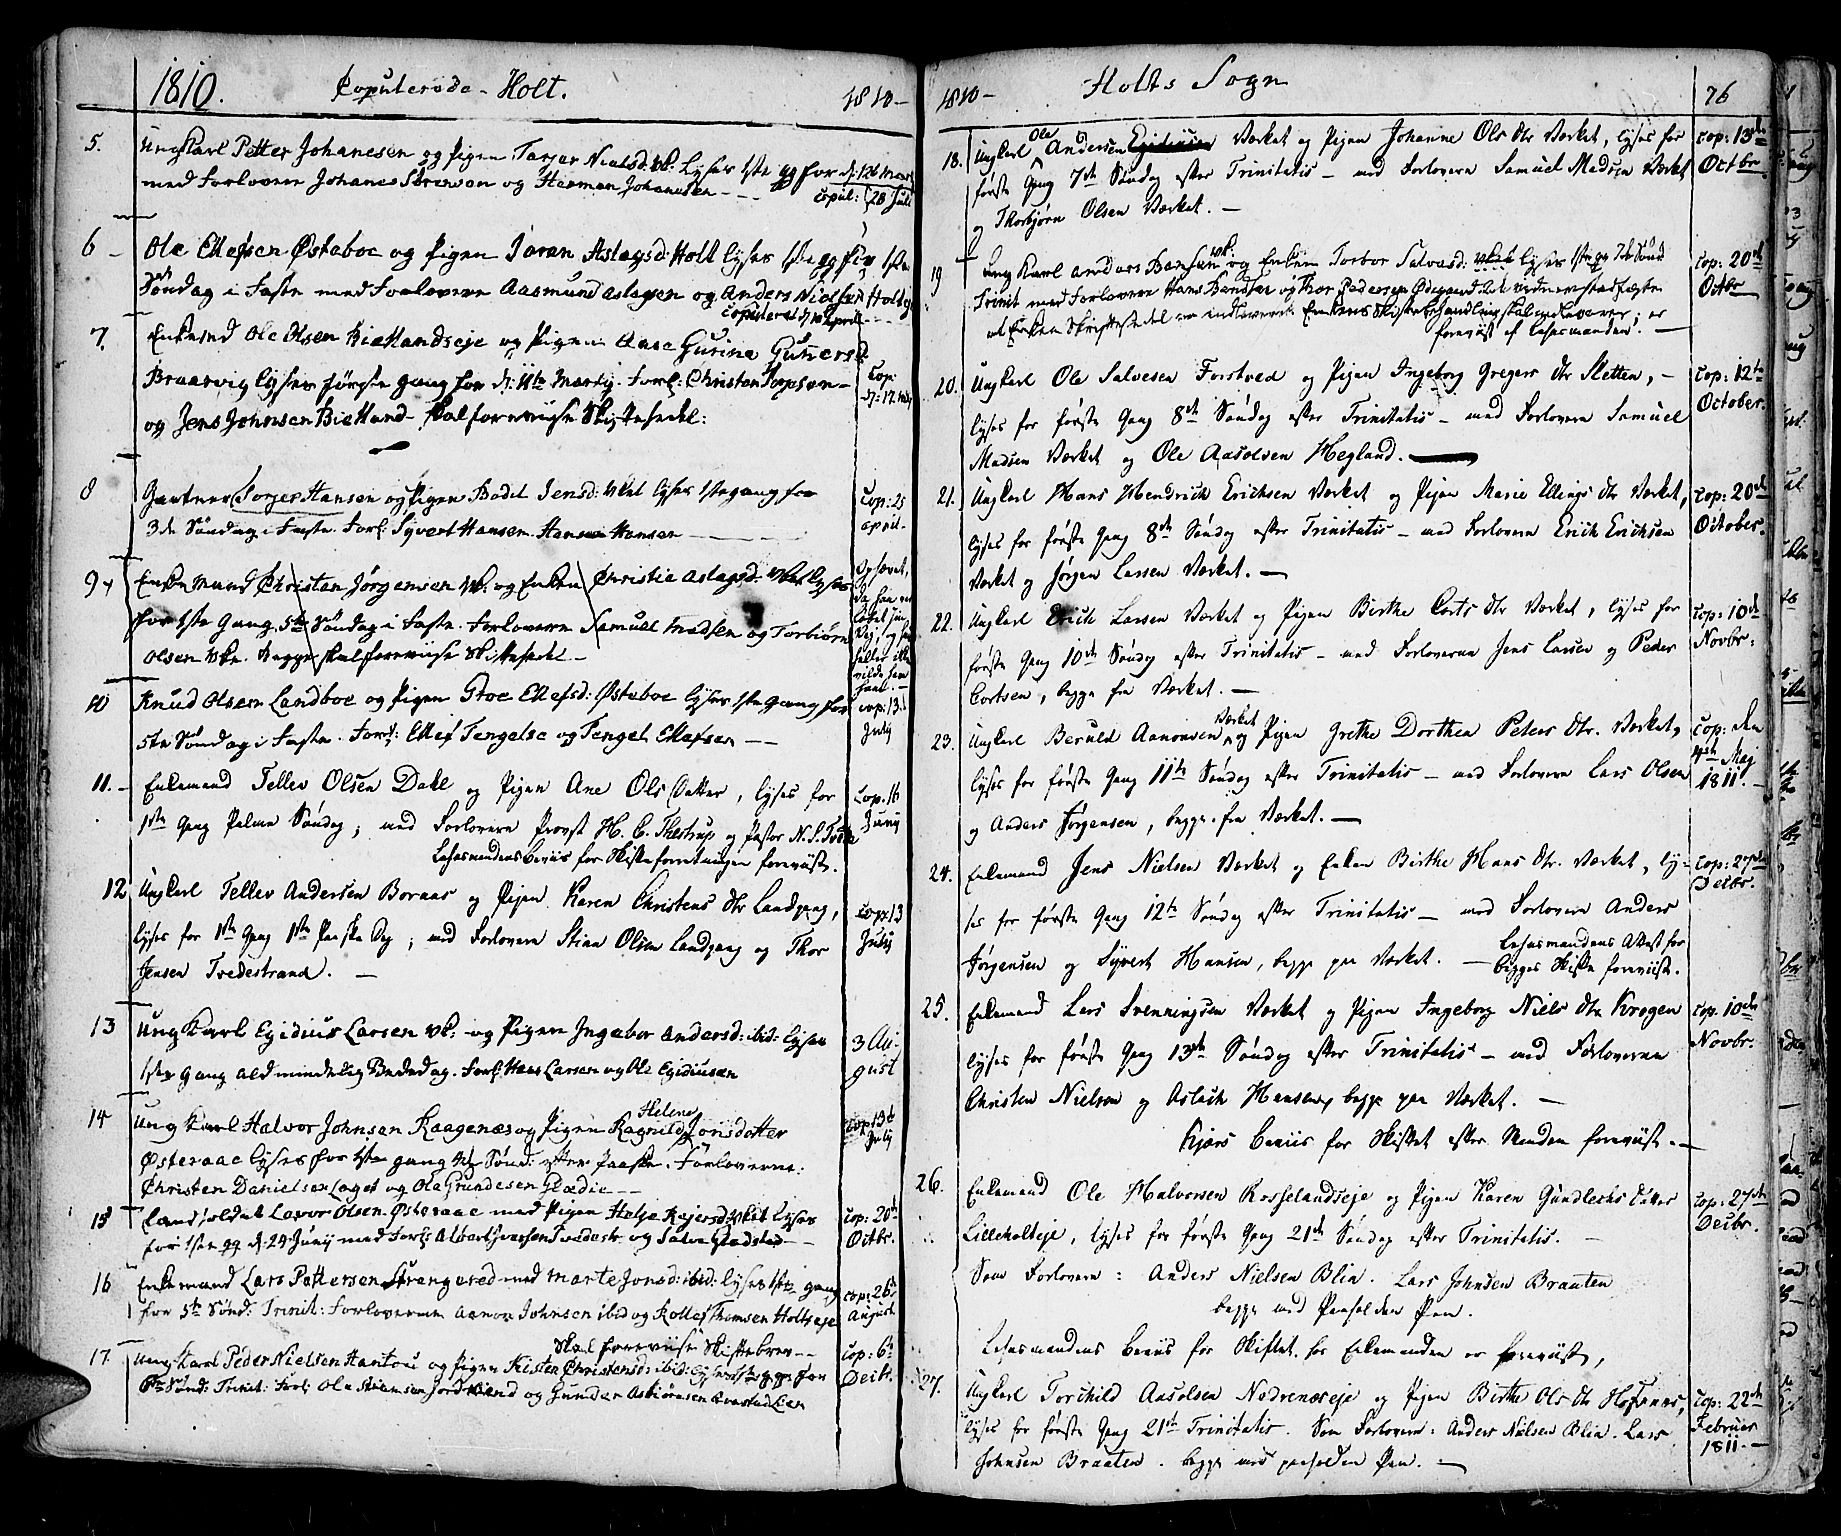 1810. Copulerede - Holt. 1810-
5. Ungkarl Petter Johanesen og Pigen Tarjer Nielsd: Vk: lyses 1ste gg for d: 12te Mart
med Forlovere Johanes Sørensen og Herman Johanesen - - copul: 28 Juli
6 - Ole Ellefsen Østeboe og Pigen Joran Aslagsd: Holt lyses 1ste gg for 1ste
Søndag i Faste med Forlovere Aasmund Aslagsen og Anders Nielsen Holte
copuleret d 10 April
7. Enkemd Ole Olsen Biellandseje og Pigen Aase Gurina Gunersd
Braarvig lyses første gang for d: 11te Martj. Forl: Christen Torpsen -
og Jens Johnsen Bielland - skal foreviise Skiftesedel:
Cop:
d: 17. Maj
8 Gartner Torjer Hansen og Pigen Bodel Jensd: Vket lyses 1ste gang for
3de Søndag i Faste. Forl: Syvert Hansen. Hans Hansen
Cop: 25
april-
9 Enkemand Christen Jørgensen Vk: og Enken Christie Aslagsd: Vket lyses
for 1ste Gang 5te Søndag i Faste. Forlovere Samuel Madsen og Torbiørn
Olsen Vke. Begge skal foreviise Skiftesedel -
Ophævet,
10 Knud Olsen Landboe og Pigen Groe Ellefsd: Østeboe lyses 1ste gang for
5te Søndag i Faste. Forl: Ellef Tengelse og Tengel Ellefsen - -
cop: 13.
July
11. - Enkemand Tellev Olsen Dahl og Pigen Ane Ols Datter, lyses for
1ste Gang Palme Søndag; med Forlovere Provst H. C. Thestrup og Pastor N. S.
Lensmandens beviis for Skifteforretningen foreviist.
Cop. 16
Junij
12 Ungkarl Tellev Andersen Boraas og Pigen Karen Christens dtr Landgang,
lyses for 1ste Gang 1ste Paaske Dag; med Forlovere Stian Olsen Landgang og Thor
Jensen Tvedestrand. -
cop: 13
July
13 Ung Karl Egidius Larsen Vk: og Pigen Ingebor Andersd: ibid: lyses
1ste gang aldmindelig Bededag. Forl: Hans Larsen og Ole Egidiusen
3 Au-
gust
14 Ung Karl Halvor Johnsen Raagenæs og Pigen Ragnild Helene Jonsdotter
Østeraae lyses for 1ste gang 4de Sønd: efter Paaske. Forloverne:
Christen Danielsen Laget og Ola Grundesen Glædie - -
cop: 13de
July
15 Landsoldat Lavor Olsen Østeraae med Pigen Helje Rejersd: Vket lyses
for 1ste gg d: 24 Junij med Forl: Albert Iversen Tvedestr: og Salve Gladstad -
cop: 20de
Octbr.
16 Enkemand Lars Pettersen Strengered med Marte Jonsd: ibid: lyses 1ste gang
for 5te Sønd: Trinit: Forloverne Aanon Johnsen ibid og Rollef Thomsen Holtseje
Skal foreviise Skiftebrev - -
cop: 26de
August
17. Ung Karl Peder Nielsen Hantou og Pigen Kisten Christensd: ibid: lyses 1ste gg for
6te Sønd: Trinit: Forl: Ole Steensen Jordkiend og Gunder Asbiørnsen Qvastad Lien
cop: 6te
Octbr.
1810 - Holts Sogn 76
18. Ungkarl Ole Andersen Værket og Pigen Johanne Ols dtr Værket, lyses for
første Gang 7de Søndag efter Trinitatis - med Forlovere Samuel Madsen Værket
og Thorbjørn Olsen Værket. -
cop: 13de
Octbr
19 Ung Karl Anders Bensen Vk: og Enken Torbor Salvesd: Vket lyses 1ste gg 7de Sønd
Trinit med Forlovere Hans Bensen og Thor Pedersen Ødegaard
at Enken Skiftesedel er indleveret. Enkens Skiftebehandling skal indleveres; er
foreviist af Lensmanden. -
cop: 20de
Octbr
20. Ungkarl Ole Salvesen Forstved og Pigen Ingeborg Gregers dtr Sletten, -
lyses for første Gang 8de Søndag efter Trinitatis - med Forlovere Samuel
Madsen Værket og Ole Aasolsen Hegland.
cop: 12te
October.
21. Ungkarl Hans Hendrich Erichsen Værket og Pigen Marie Ellings dtr Værket,
lyses for første Gang 8de Søndag efter Trinitatis - med Forlovere Erich Erichsen
Værket og Jørgen Larsen Værket. -
cop: 20de
October.
22. Ungkarl Erich Larsen Værket og Pigen Birthe Corts dtr Værket, lyses for
første Gang 10de Søndag efter Trinitatis - med Forloverne Jens Larsen og Peder
Cortsen, begge fra Værket. -
cop: 10de
Novbr:
23. Ungkarl Beruld Aanonsen Værket og Pigen Grethe Dorthea Peters dtr. Værket,
lyses for første Gang 11te Søndag efter Trinitatis - med Forlovere Lars Olsen
og Anders Jørgensen, begge fra Værket. -
cop: den
4de Maj
1811. -
24. Enkemand Jens Nielsen Værket og Enken Birthe Hans dtr. Værket, ly-
ses for første Gang 12te Søndag efter Trinitatis - med Forlovere Anders
Jørgensen og Syvert Hansen, begge paa Værket. - Lensmandens Attest for
begges Skifte foreviist.
cop: 27de
Decbr.
25. Enkemand Lars Svenningsen Værket og Pigen Ingeborg Niels dtr Krogen
lyses for første Gang 13de Søndag efter Trinitatis - med Forloverne
Christen Nielsen og Aslach Hansen, begge paa Værket. -
Kjærs beviis for Skiftet efter Manden foreviist. -
cop. 10de
Novbr.
26. Enkemand Ole Halvorsen Rosselandseje og Pigen Karen Gundlechs datter
Lilleholteje, lyses for første Gang 21de Søndag efter Trinitatis. -
Som Forlovere: Anders Nielsen Blin. Lars Johnsen Braaten
begge med Paaholden Pen.
Lensmandens beviis for Skiftet for Enkemanden er foreviist,
cop: 27de
Decbr.
27. Ungkarl Torchild Aasolsen Nedrenæseje og Pigen Birthe Ols dtr Hofsnæs,
lyses for første Gang 21de Trinitatis. Som Forlovere: Anders Nielsen Blin. Lars
Johnsen Braaten. begge med paaholden Pen. -
cop: 22de
Februar
1811. -